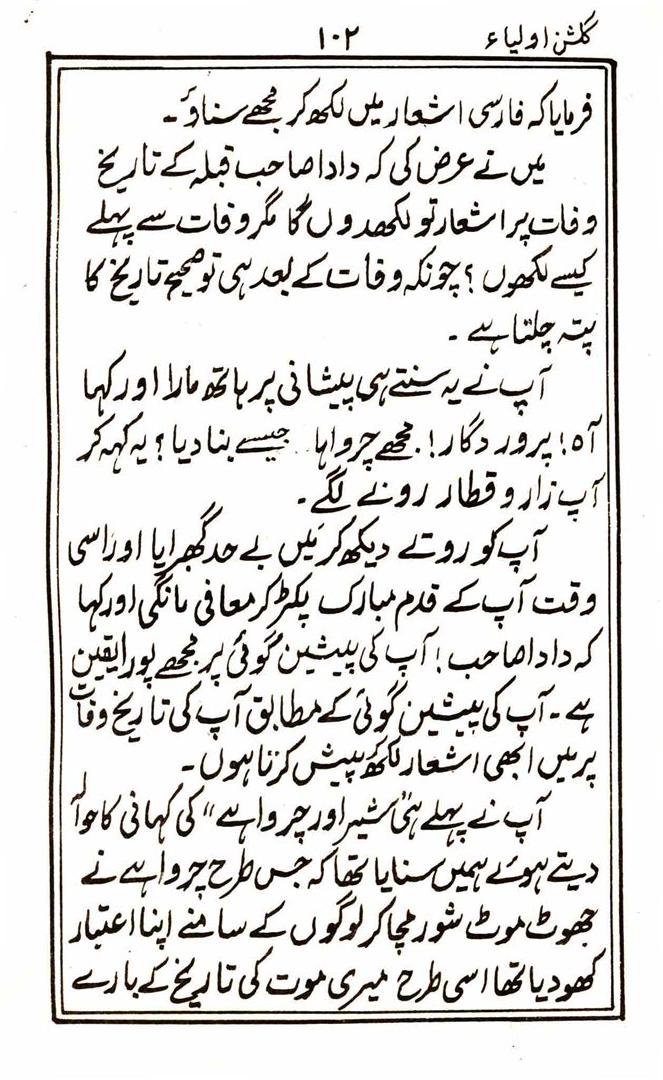 گلشن اولیاء ۱۰۲
فرمایا کہ فارسی اشعار میں لکھ کر مجھے سناؤ۔
میں نے عرض کی کہ دادا صاحب قبلہ کے تاریخ
وفات پر اشعار تو لکھدوں گا مگر وفات سے پہلے
کیسے لکھوں؟ چونکہ وفات کے بعد ہی تو صحیح تاریخ کا
پتہ چلتا ہے۔
آپ نے یہ سنتے ہی پیشانی پر ہاتھ مارا اور کہا
آہ! پروردگار! مجھے چرواہا جیسے بنا دیا؟ یہ کہہ کر
آپ زار و قطار رونے لگے۔
آپ کو روتے دیکھ کر میں بے حد گھبرایا اور اسی
وقت آپ کے قدم مبارک پکڑ کر معافی مانگی اور کہا
کہ دادا صاحب! آپ کی پیشین گوئی پر مجھے پورا یقین
ہے۔ آپ کی پیشین گوئی کے مطابق آپ کی تاریخ وفات
پر میں ابھی اشعار لکھ کر پیش کرتا ہوں۔
آپ نے پہلے ہی "شیر اور چرواہے" کی کہانی کا حوالہ
دیتے ہوئے ہمیں سنایا تھا کہ جس طرح چرواہے نے
جھوٹ موٹ شور مچا کر لوگوں کے سامنے اپنا اعتبار
کھو دیا تھا اسی طرح میری موت کی تاریخ کے بارے